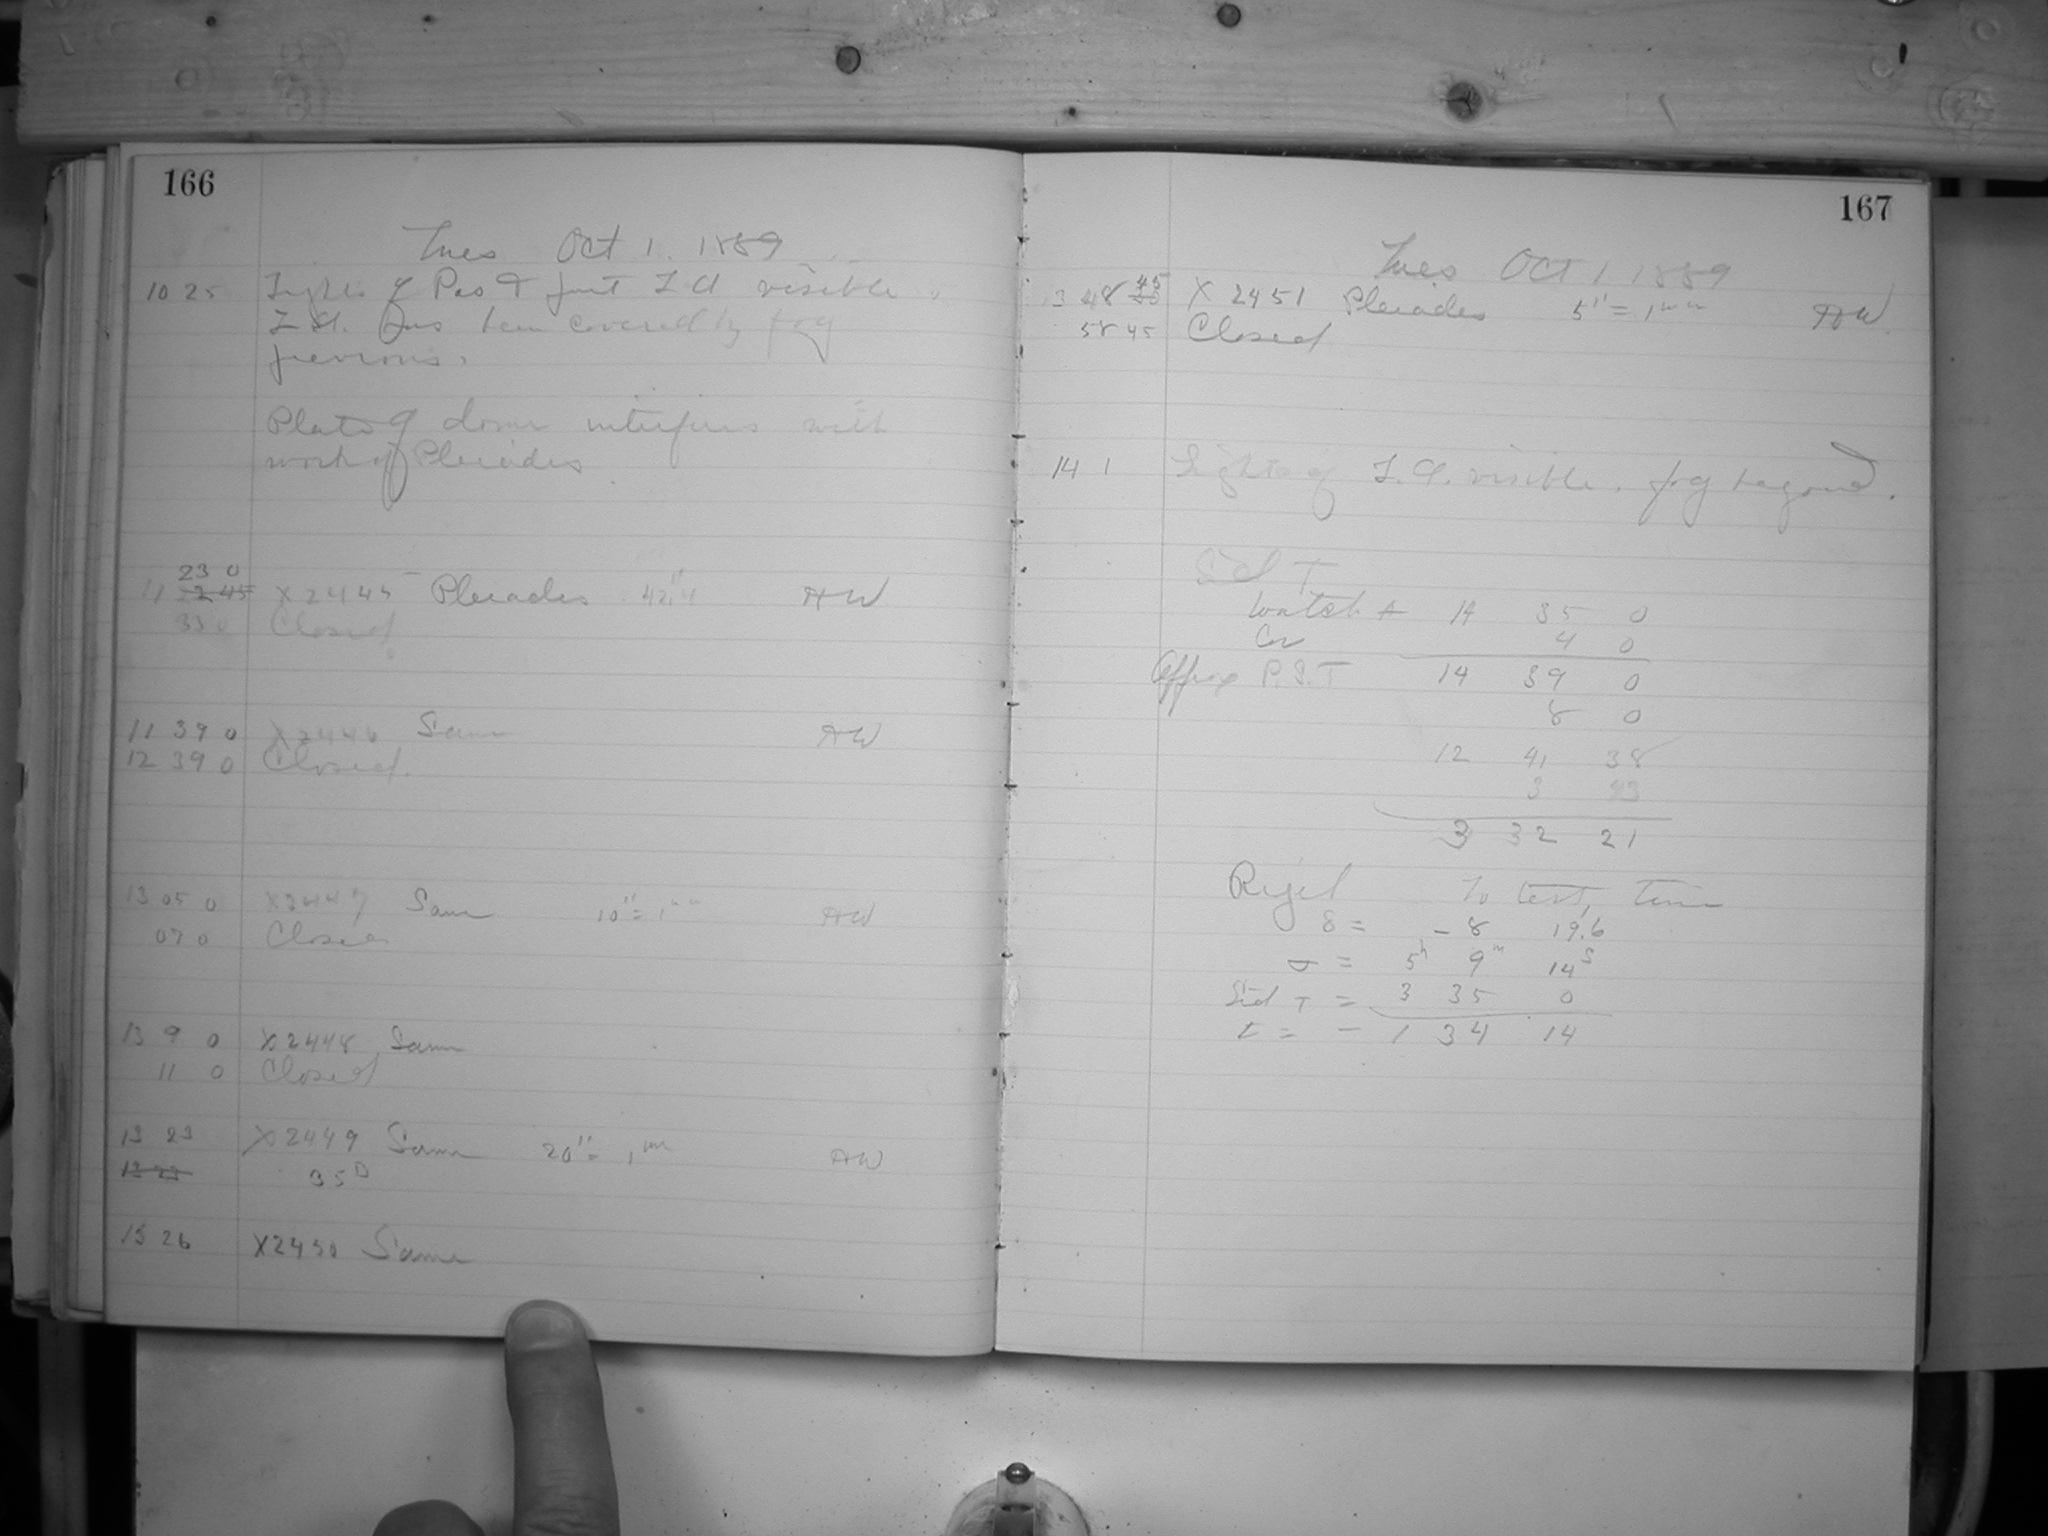 166
Tues Oct 1. 1889
10 25 Lights of Pas & just L A visible.
L A. has been covered by fog
previous.
Plate of dome interferes with
work of Pleiades
23 0
11 22 45 X 2445 Pleiades 42".4 AW
33 0 Closed
11 39 0 X 2446 Same AW
12 39 0 Closed.
13 05 0 X2447 Same 10" = 1mm AW
07 0 Closed
13 9 0 X2448 Same
11 0 Closed
13 23 X2449 Same 20" = 1mm AW
13 23 35
13 26 X2450 Same
167
Tues Oct 1 1889
13 48 45 X 2451 Pleiades 5" = 1mm AW
58 45 Closed
14 1 Lights of L.A. visible. fog beyond.
Sid T
Watch A 14 35 0
Cor 4 0
Approx P.S.T 14 39 0
8 0
12 41 38
3
3 32 21
Rigel To test, time
δ = - 8 19.6
= 5h 9m 14s
Sid T = 3 35 0
t = - 1 34 14